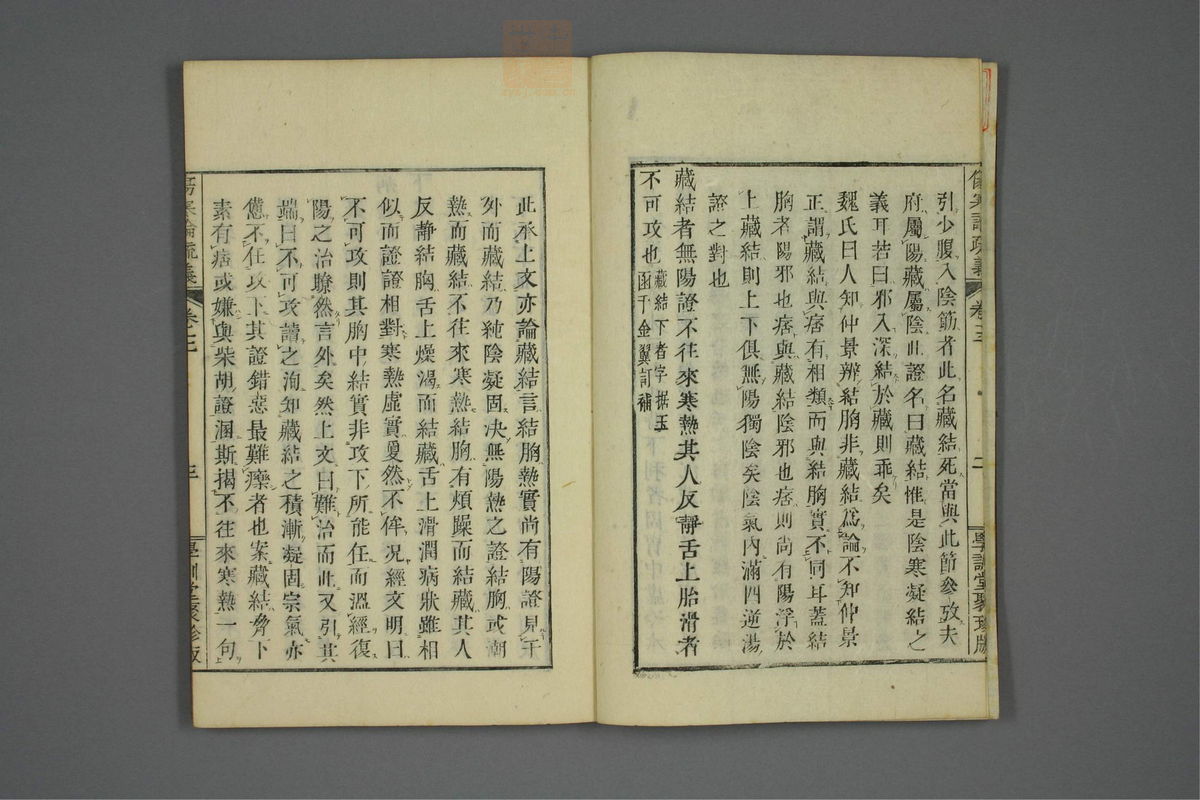 傷寒論疏義
卷三
二
學訓堂聚珍版
引少腹入陰筋者此名藏結死當與此節參攷夫
府屬陽藏屬陰此證名曰藏結惟是陰寒凝結之
義耳若曰邪入深結於藏則乖矣
魏氏曰人知仲景辨結胸非藏結爲論不知仲景
正謂藏結與痞有相類而與結胸實不同耳蓋結
胸者陽邪也痞與藏結陰邪也痞則尚有陽浮於
上藏結則上下俱無陽獨陰矣陰氣內滿四逆湯
證之對也
藏結者無陽證不往來寒熱其人反靜舌上胎滑者
不可攻也藏結下者字據玉
函千金翼訂補
此承上文亦論藏結言結胸熱實尚有陽證見于
外而藏結乃純陰凝固決無陽熱之證結胸或潮
熱而藏結不往來寒熱結胸有煩躁而結藏其人
反靜結胸舌上燥渴而結藏舌上滑潤病狀雖相
似而證證相對寒熱虛實夐然不侔况經文明曰
不可攻則其胸中結實非攻下所能任而溫經復
陽之治瞭然言外矣然上文曰難治而此又引其
端曰不可攻讀之洵知藏結之積漸凝固宗氣亦
憊不任攻下其證錯惡最難療者也案藏結脅下
素有痞或嫌與柴胡證溷斯揭不往來寒熱一句
傷寒論疏義
卷三
三
學訓堂聚珍版